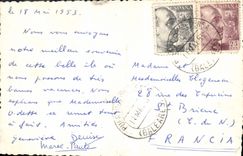 le 18 Mai 1953.
Nous vous envoyons
notre meilleur souvenir
de cette belle île où
nous passons de très
bonnes vacances. Nous
espérons que Mademoiselle
Odette se remet tout
à fait. Amitiés
Geneviève Denise
Marie-Paule
Madame et
Mademoiselle
28 rue des
St Brieuc
(C. du N.)
FRANCIA
(BALEARES)